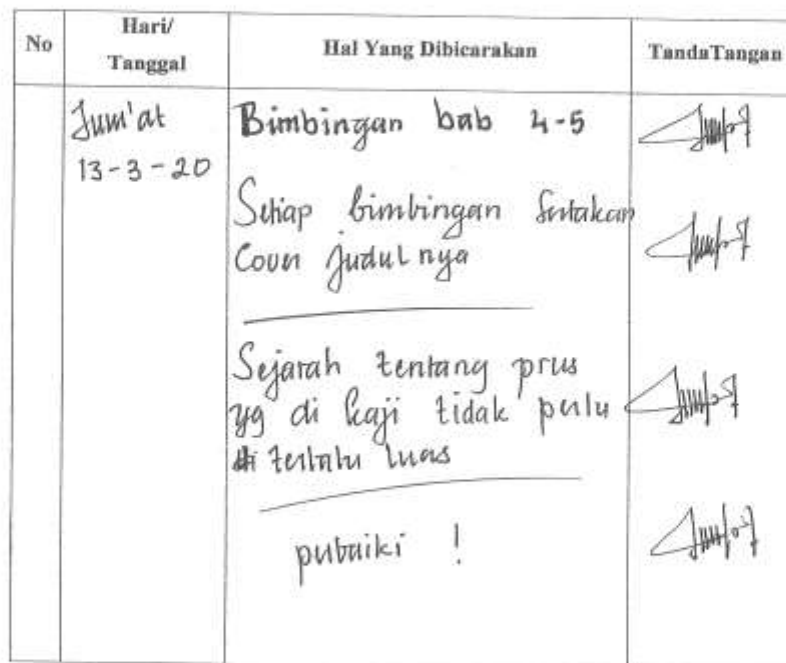 No
Hari/
Tanggal
Hal Yang Dibicarakan
TandaTangan
Jum'at
13-3-20
Bimbingan bab 4-5
Setiap bimbingan sertakan
Cover judulnya
Sejarah tentang prus
yg di kaji tidak perlu
terlalu luas
perbaiki !